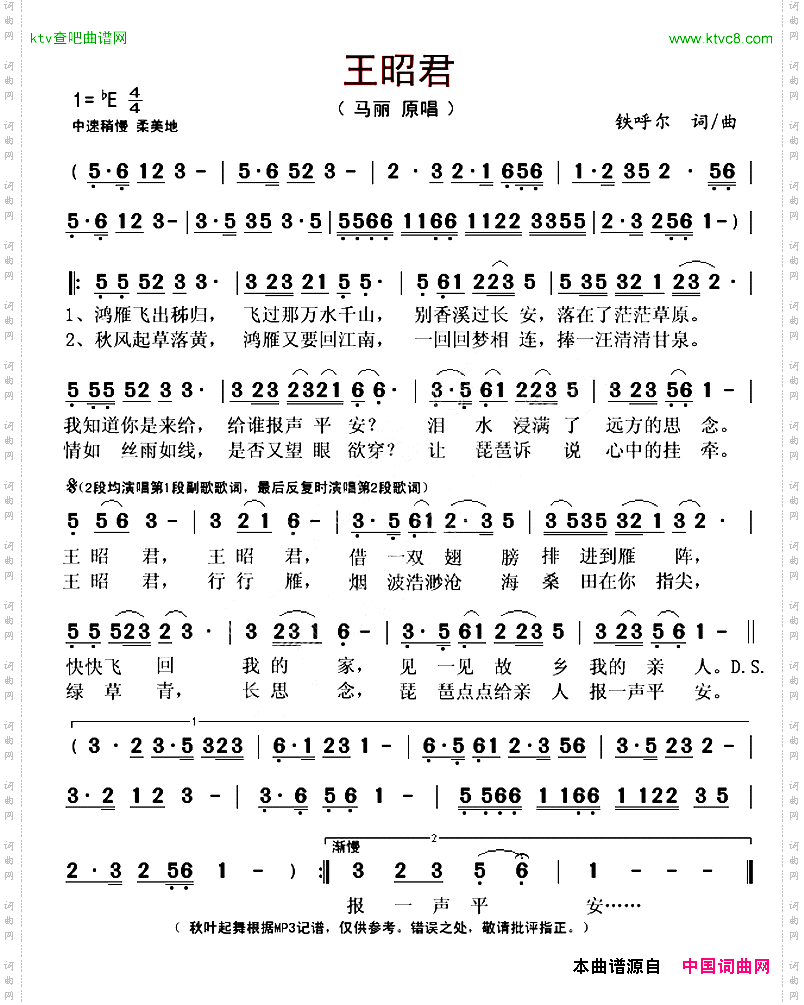 ktv查吧曲谱网 www.ktvc8.com
王昭君
1=♭E 4/4 （ 马丽 原唱 ）
中速稍慢 柔美地 铁呼尔 词/曲
( 5·6 12 3 - | 5·6 52 3 - | 2 · 3 2·1 656 | 1·2 35 2 · 56 |
5·6 12 3 - | 3·5 35 3 · | 5566 1166 1122 3355 | 2·3 256 1 - ) |
‖: 5 5 52 3 3· | 3 23 21 5 5· | 5 61 223 5 | 535 32 1 232 · |
1、鸿雁飞出秭归， 飞过那万水千山， 别香溪过长 安，落在了茫茫草原。
2、秋风起草落黄， 鸿雁又要回江南， 一回回梦相 连，捧一汪清清甘泉。
5 55 52 3 3· | 3 23 2321 6 6· | 3·5 61 223 5 | 3 23 56 1 - |
我知道你是来给， 给谁报声平 安？ 泪 水 浸满 了 远方的思 念。
情如 丝雨如线， 是否又望 眼 欲穿？ 让 琵琶诉 说 心中的挂 牵。
(2段均演唱第1段副歌歌词，最后反复时演唱第2段歌词)
5 56 3 - | 3 21 6 - | 3·5 61 2·3 5 | 3 535 321 32 · |
王 昭 君， 王 昭 君， 借 一双 翅 膀 排 进到雁 阵，
王 昭 君， 行 行 雁， 烟 波浩渺沧 海 桑 田在你 指尖，
5 5 523 2 · | 3 231 6 - | 3·5 61 2 23 5 | 3·23 56 1 - ‖
快快飞 回 我 的 家， 见 一见 故 乡 我的 亲 人。D.S.
绿 草 青， 长 思 念， 琵 琶点点给亲 人 报一声平 安。
1
( 3 · 2 3·5 323 | 6·1 23 1 - | 6·5 61 2·3 56 | 3·5 23 1 - |
3·2 12 3 - | 3·6 56 1 - | 5 566 1 166 1 122 35 |
2 · 3 2 56 1 - ) :‖ 渐慢 2 3 23 5 6 | 1 - - - ‖
报 一 声 平 安……
（ 秋叶起舞根据MP3记谱，仅供参考。错误之处，敬请批评指正。）
本曲谱源自 中国词曲网